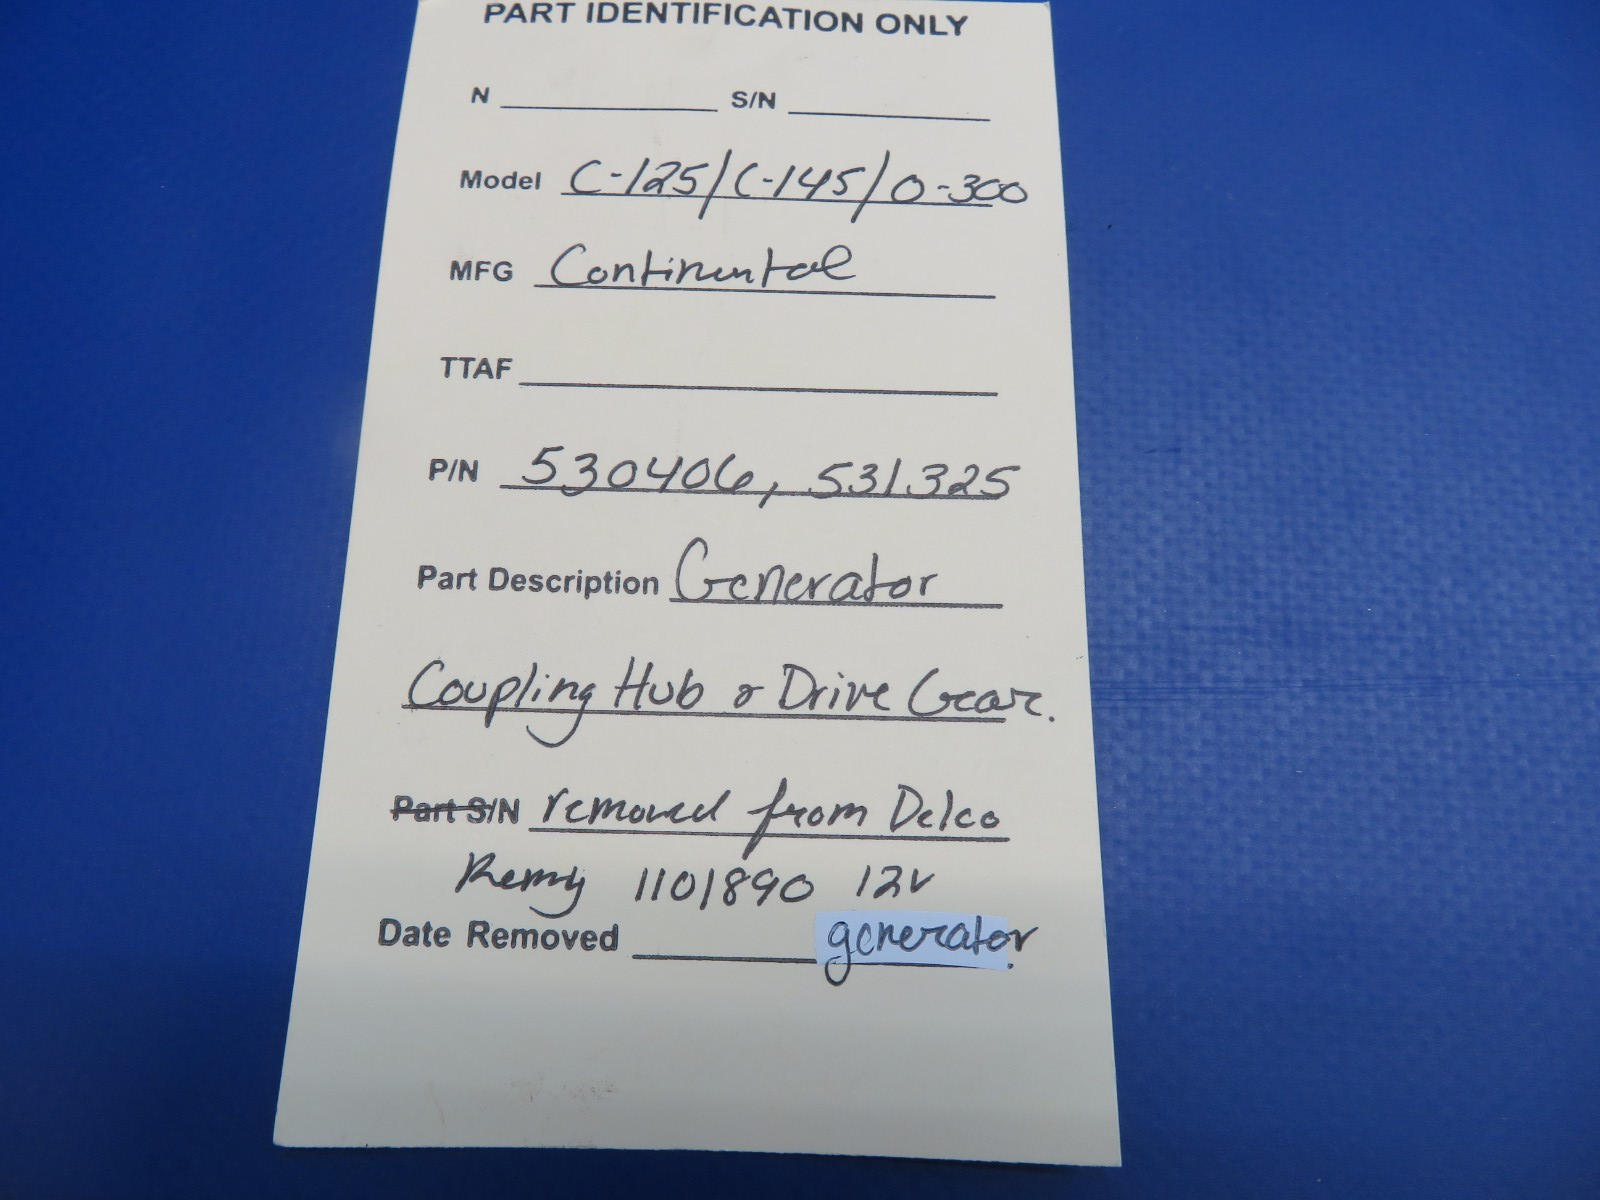 PART IDENTIFICATION ONLY
N ____________ S/N ____________
Model C-125/C-145/O-300
MFG Continental
TTAF ____________
P/N 530406, 531325
Part Description Generator
Coupling Hub & Drive Gear.
Part S/N removed from Delco
Remy 1101890 12V
Date Removed ____________ generator.